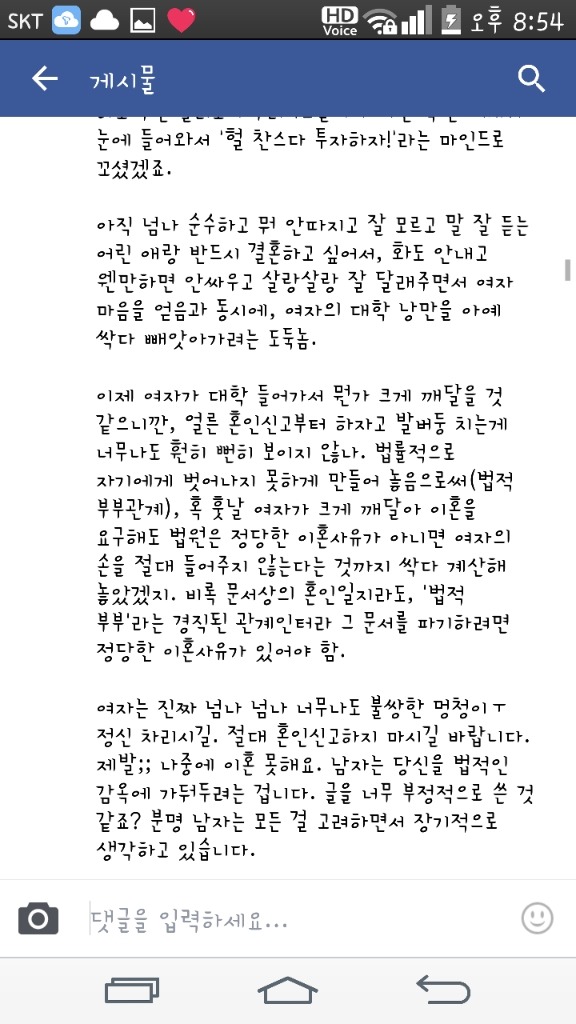 SKT HD Voice 오후 8:54
게시물
눈에 들어와서 '헐 찬스다 투자하자!'라는 마인드로
꼬셨겠죠.
아직 넘나 순수하고 뭐 안따지고 잘 모르고 말 잘 듣는
어린 애랑 반드시 결혼하고 싶어서, 화도 안내고
웬만하면 안싸우고 살랑살랑 잘 달래주면서 여자
마음을 얻음과 동시에, 여자의 대학 낭만을 아예
싹다 빼앗아가려는 도둑놈.
이제 여자가 대학 들어가서 뭔가 크게 깨달을 것
같으니깐, 얼른 혼인신고부터 하자고 발버둥 치는게
너무나도 훤히 뻔히 보이지 않나. 법률적으로
자기에게 벗어나지 못하게 만들어 놓음으로써(법적
부부관계), 혹 훗날 여자가 크게 깨달아 이혼을
요구해도 법원은 정당한 이혼사유가 아니면 여자의
손을 절대 들어주지 않는다는 것까지 싹다 계산해
놓았겠지. 비록 문서상의 혼인일지라도, '법적
부부'라는 경직된 관계인터라 그 문서를 파기하려면
정당한 이혼사유가 있어야 함.
여자는 진짜 넘나 넘나 너무나도 불쌍한 멍청이ㅜ
정신 차리시길. 절대 혼인신고하지 마시길 바랍니다.
제발;; 나중에 이혼 못해요. 남자는 당신을 법적인
감옥에 가둬두려는 겁니다. 글을 너무 부정적으로 쓴 것
같죠? 분명 남자는 모든 걸 고려하면서 장기적으로
생각하고 있습니다.
댓글을 입력하세요...